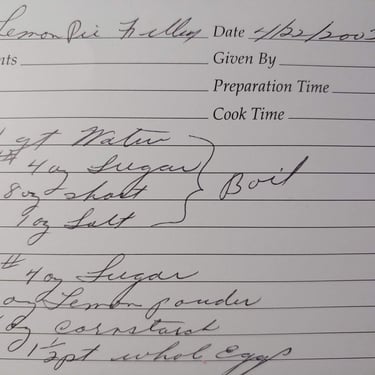 Lemon Pie Filling Date 4/22/2003
nts Given By
Preparation Time
Cook Time
qt Water
# 4oz Sugar
8oz short Boil
oz Salt
# 4oz Sugar
oz Lemon powder
oz Cornstarch
1 1/2 pt whol Eggs